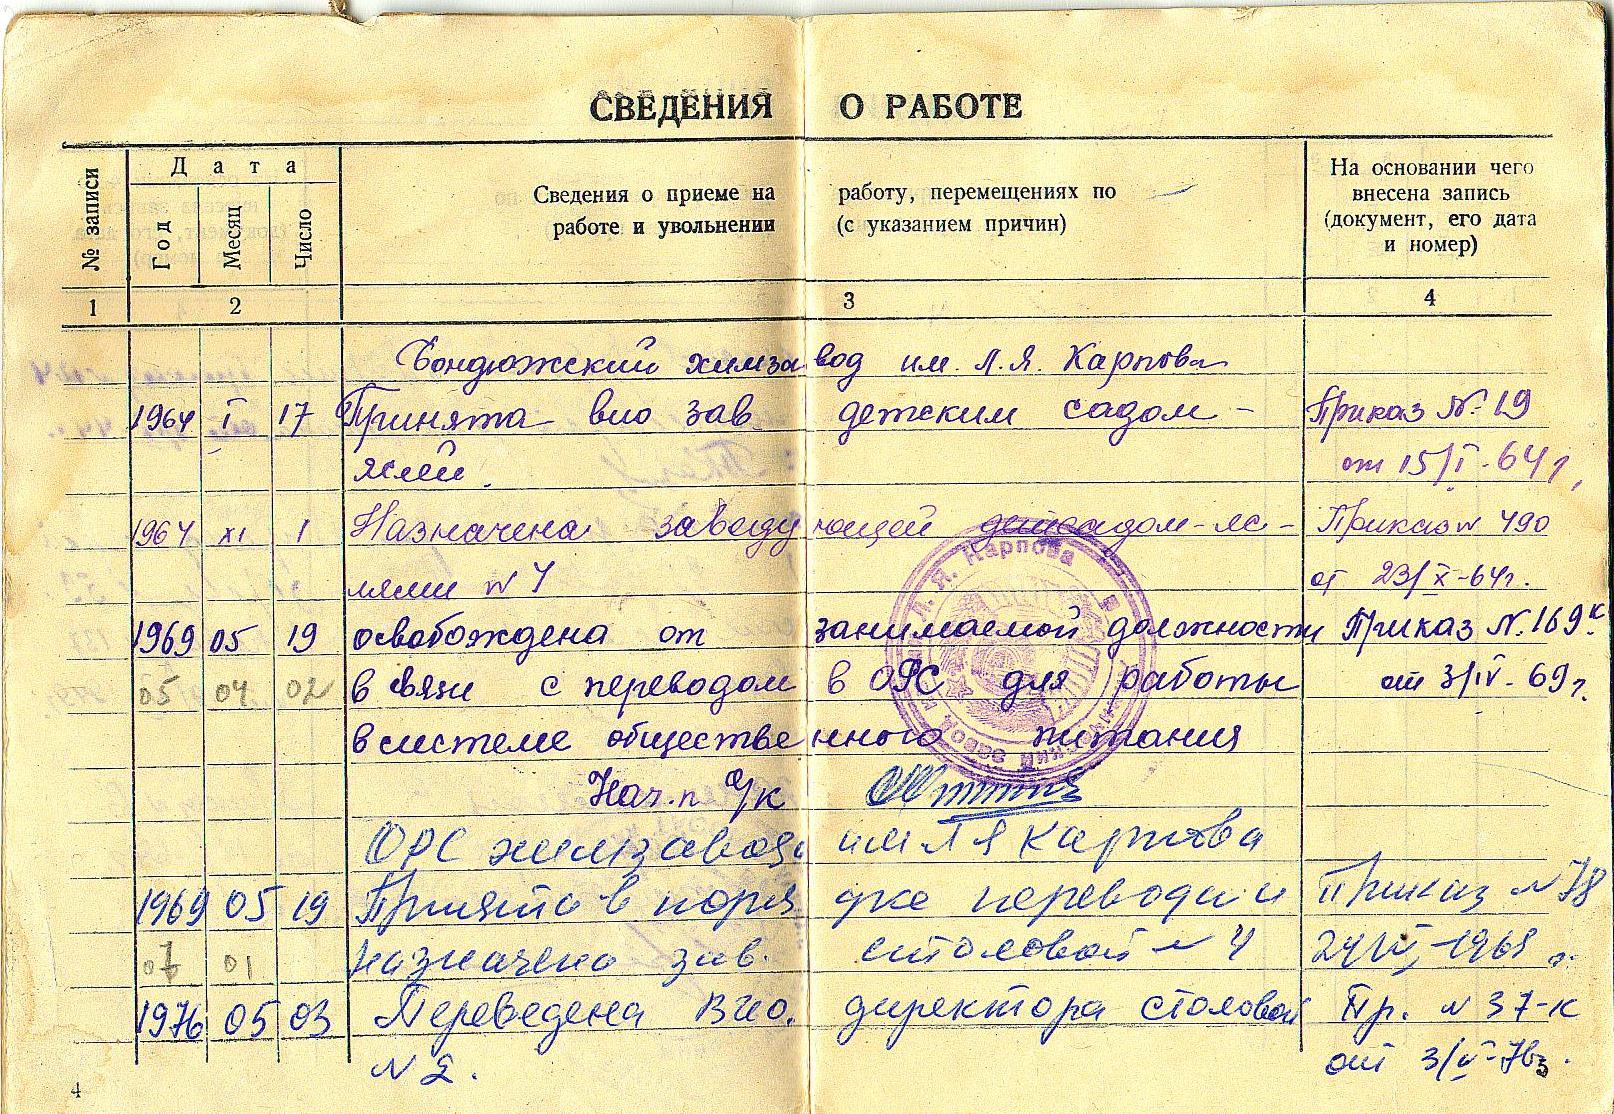 СВЕДЕНИЯ О РАБОТЕ
№ записи
Дата
Год
Месяц
Число
Сведения о приеме на работу, перемещениях по
работе и увольнении (с указанием причин)
На основании чего
внесена запись
(документ, его дата
и номер)
1 2 3 4
Бондюжский химзавод им. Л.Я. Карпова
1964 I 17 Принята врио зав детским садом- Приказ № 19
яслей. от 15/I-64г.
1964 XI 1 Назначена заведующей детсадом-яс- Приказ № 490
лями № 4 от 23/X-64г.
1969 05 19 освобождена от занимаемой должности Приказ №. 169к
05 04 02 в связи с переводом в ОРС для работы от 3/IV-69г.
в системе общественного питания
Нач.
ОРС химзавода им Л Я Карпова
1969 05 19 Принята в порядке перевода и Приказ № 78
07 01 назначена зав. столовой № 4
1976 05 03 Переведена Врио. директора столовой Пр. № 37-к
№ 2. от 3/V-76г
Л. Я. Карпова
завод
4